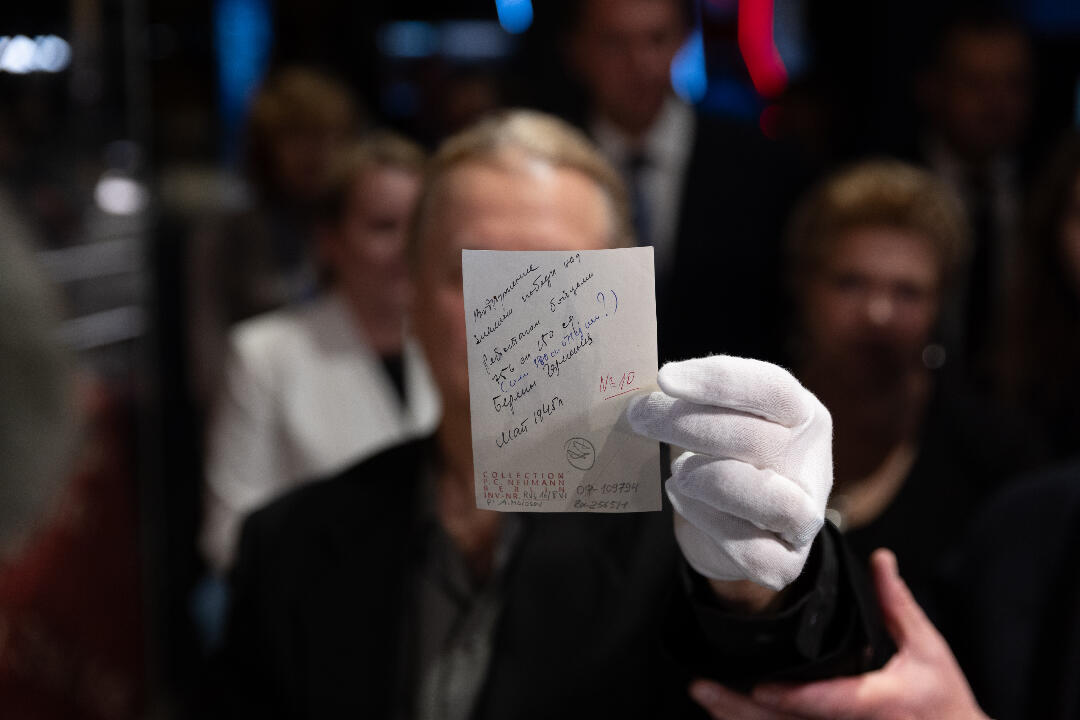 Водружение
знамени победы над
Рейхстагом бойцами
756 сп 150 сд
Берлин Германия
Май 1945г
№ 10
COLLECTION
P.C. NEUMANN
BERLIN
INV-NR.
Ph. A. Morosov
ОФ-109794